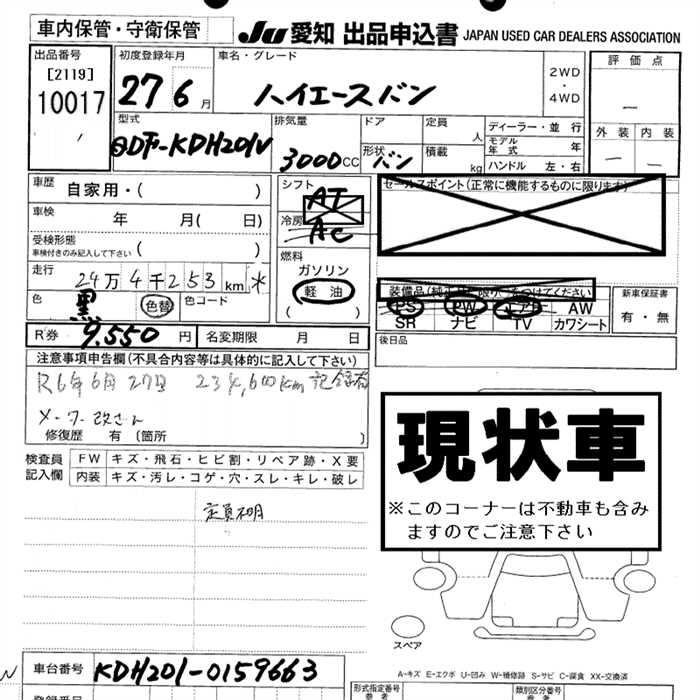 車内保管・守衛保管
JU 愛知 出品申込書 JAPAN USED CAR DEALERS ASSOCIATION
出品番号 [2119] 10017
初度登録年月 27 6 月
車名・グレード ハイエースバン
2WD ・ 4WD
評価点 —
外装 — 内装 —
型式 QDF-KDH201V
排気量 3000 CC
ドア 形状 バン
定員 人
積載 kg
ディーラー・並行
モデル年式 年
ハンドル 左・右
車歴 自家用・( )
車検 年 月( 日)
受検形態 車検付きのみ記入して下さい ( )
走行 24万4千253 km
色 黒 色替 色コード
シフト AT
冷房 AC
燃料 ガソリン 軽油 ( )
セールスポイント(正常に機能するものに限ります)
PS PW AW
SR ナビ TV カワシート
新車保証書 有・無
後日品
R券 9,550 円
名変期限 月 日
注意事項申告欄(不具合内容等は具体的に記入して下さい)
R6年6月27日 234,600km 記録有
メーター改ざん
修復歴 有 (箇所 )
検査員記入欄
FW キズ・飛石・ヒビ割・リペア跡・X要
内装 キズ・汚レ・コゲ・穴・スレ・キレ・破レ
定員不明
現状車
※このコーナーは不動車も含みますのでご注意下さい
スペア
A-キズ E-エクボ U-凹み W-補修跡 S-サビ C-腐食 XX-交換済
車台番号 KDH201-0159663
形式指定番号
類別区分番号
参考
登録番号